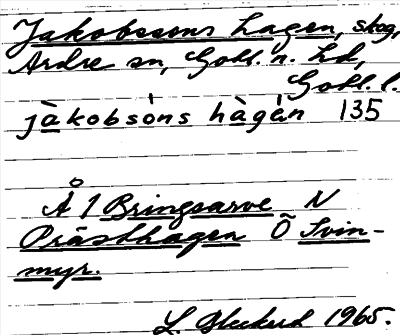 Jakobssons hagen, skog,
Ardre sn, Gotl. n. hd,
Gotl. l.
jàkobsòns hàgàn 135
Å 1 Bringsarve N
Prästhagen Ö Svin-
myr.
L. 1965.